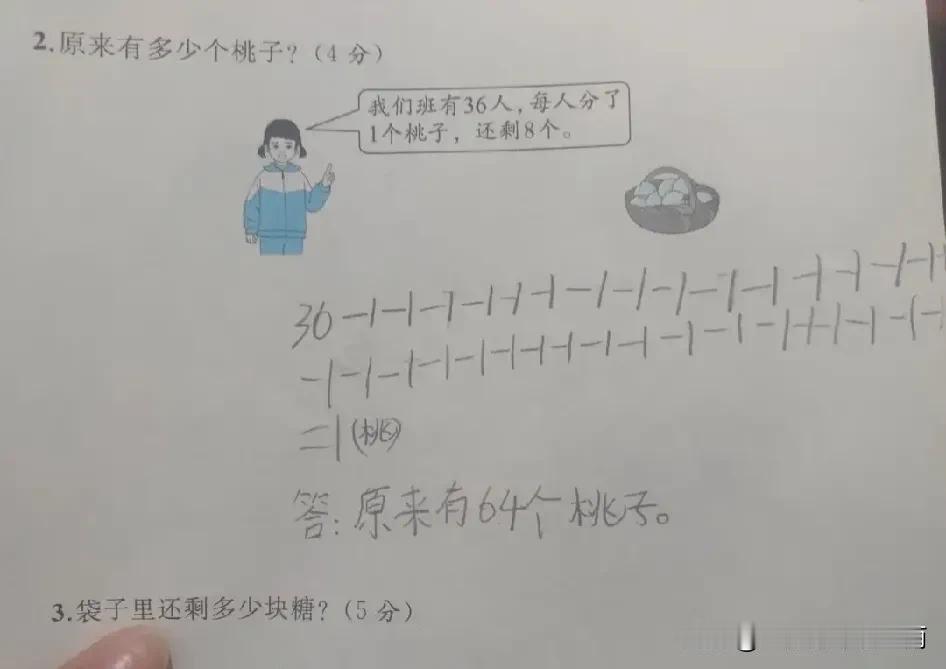 2.原来有多少个桃子?(4 分)
我们班有36人,每人分了
1个桃子，还剩8个。
36-1-1-1-1-1-1-1-1-1-1-1-1-1-1-1
-1-1-1-1-1-1-1-1-1-1-1-1-1-1-1-1-1
=1(桃)
答:原来有64个桃子。
3.袋子里还剩多少块糖?(5 分)